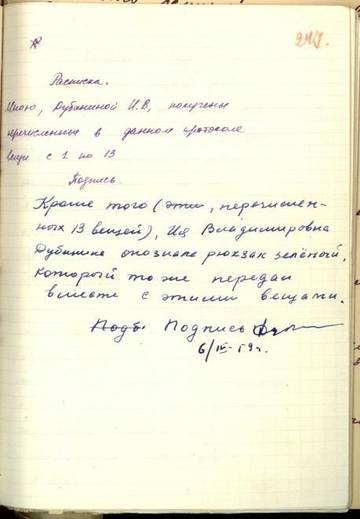 247.
Расписка.
Мною, Дубининой И.В, получены
перечисленные в данном протоколе
вещи с 1 по 13
Подпись.
Кроме того (эти, перечислен-
ных 13 вещей), Ия Владимировна
Дубинина опознала рюкзак зелёный,
который тоже передан
вместе с этими вещами.
Подпись
6/IV-59г.